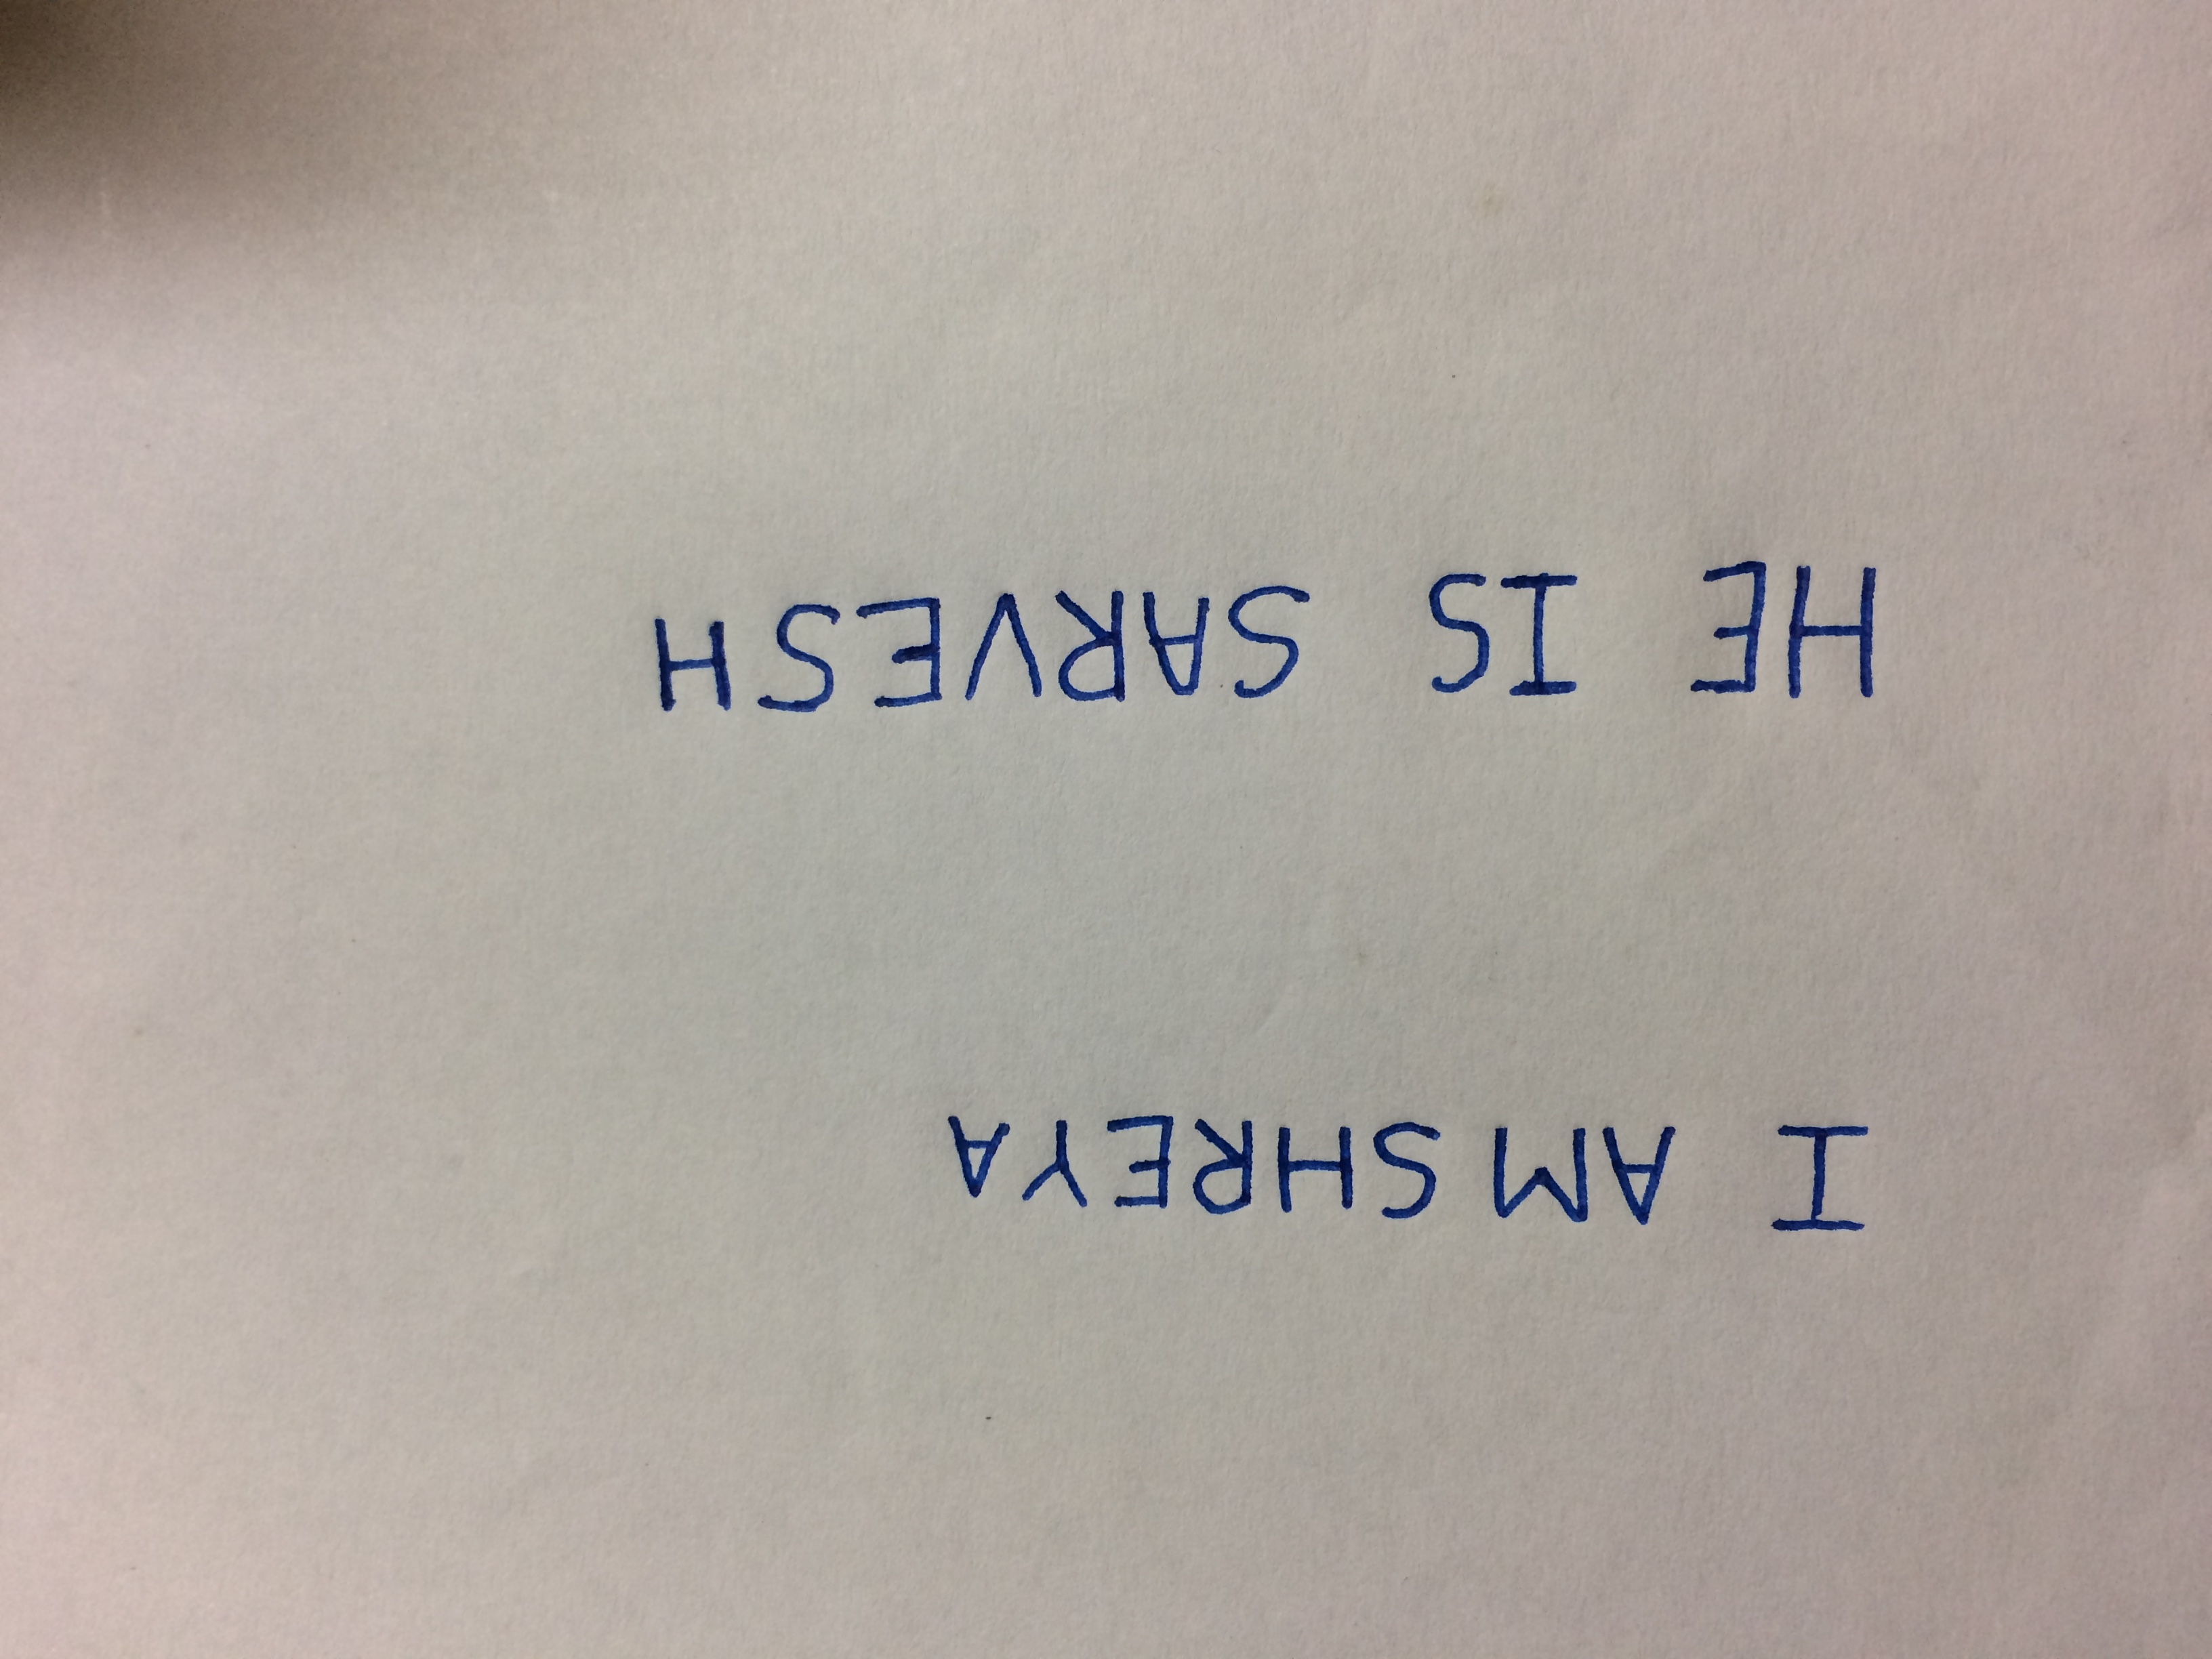 I AM SHREYA
HE IS SARVESH